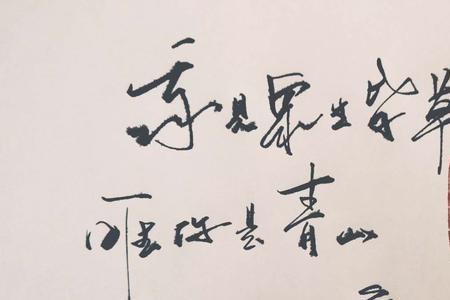 我见众生皆草
唯你是青山